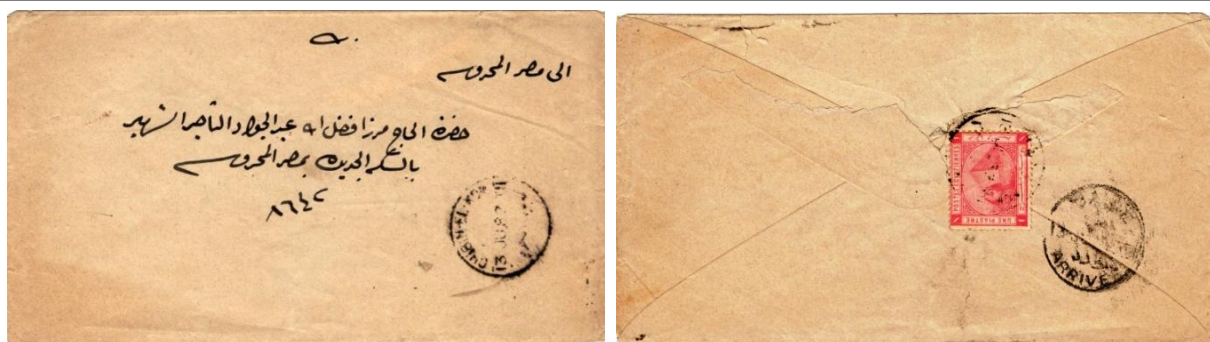 الى مصر المحروسه
حضرة الحاج مرزا فضل الله عبد الجواد التاجر الشهير
بالسكه الجديده بمصر المحروسه
٨٦٤٢
CHIBIN-EL-KOM
13 JU
POSTES EGYPTIENNES
ONE PIASTRE
ARRIVE